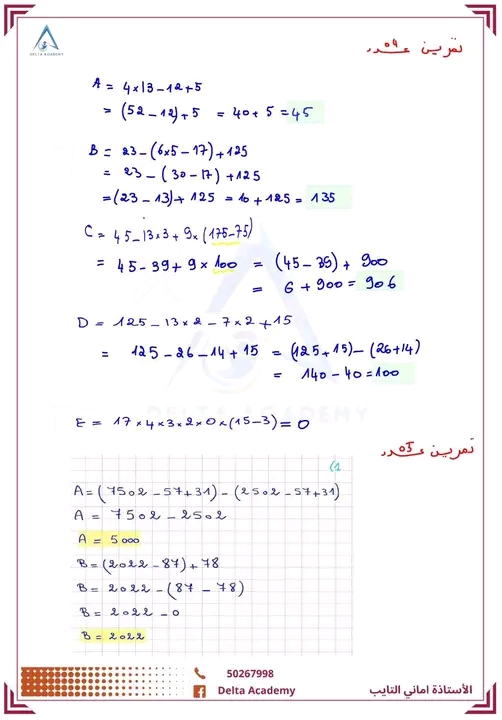 DELTA ACADEMY
تمرين عدد 04
A = 4×13-12+5
= (52-12)+5 = 40+5 = 45
B = 23-(6×5-17)+125
= 23-(30-17)+125
=(23-13)+125 = 10+125 = 135
C = 45-13×3+9×(175-75)
= 45-39+9×100 = (45-39)+900
= 6+900 = 906
D = 125-13×2-7×2+15
= 125-26-14+15 = (125+15)-(26+14)
= 140-40=100
E = 17×4×3×2×0×(15-3)=0
DELTA ACADEMY
تمرين عدد 05
(1
A=(7502-57+31)-(2502-57+31)
A = 7502-2502
A = 5000
B=(2022-87)+78
B= 2022-(87-78)
B= 2022-0
B=2022
50267998
Delta Academy
الأستاذة اماني التايب